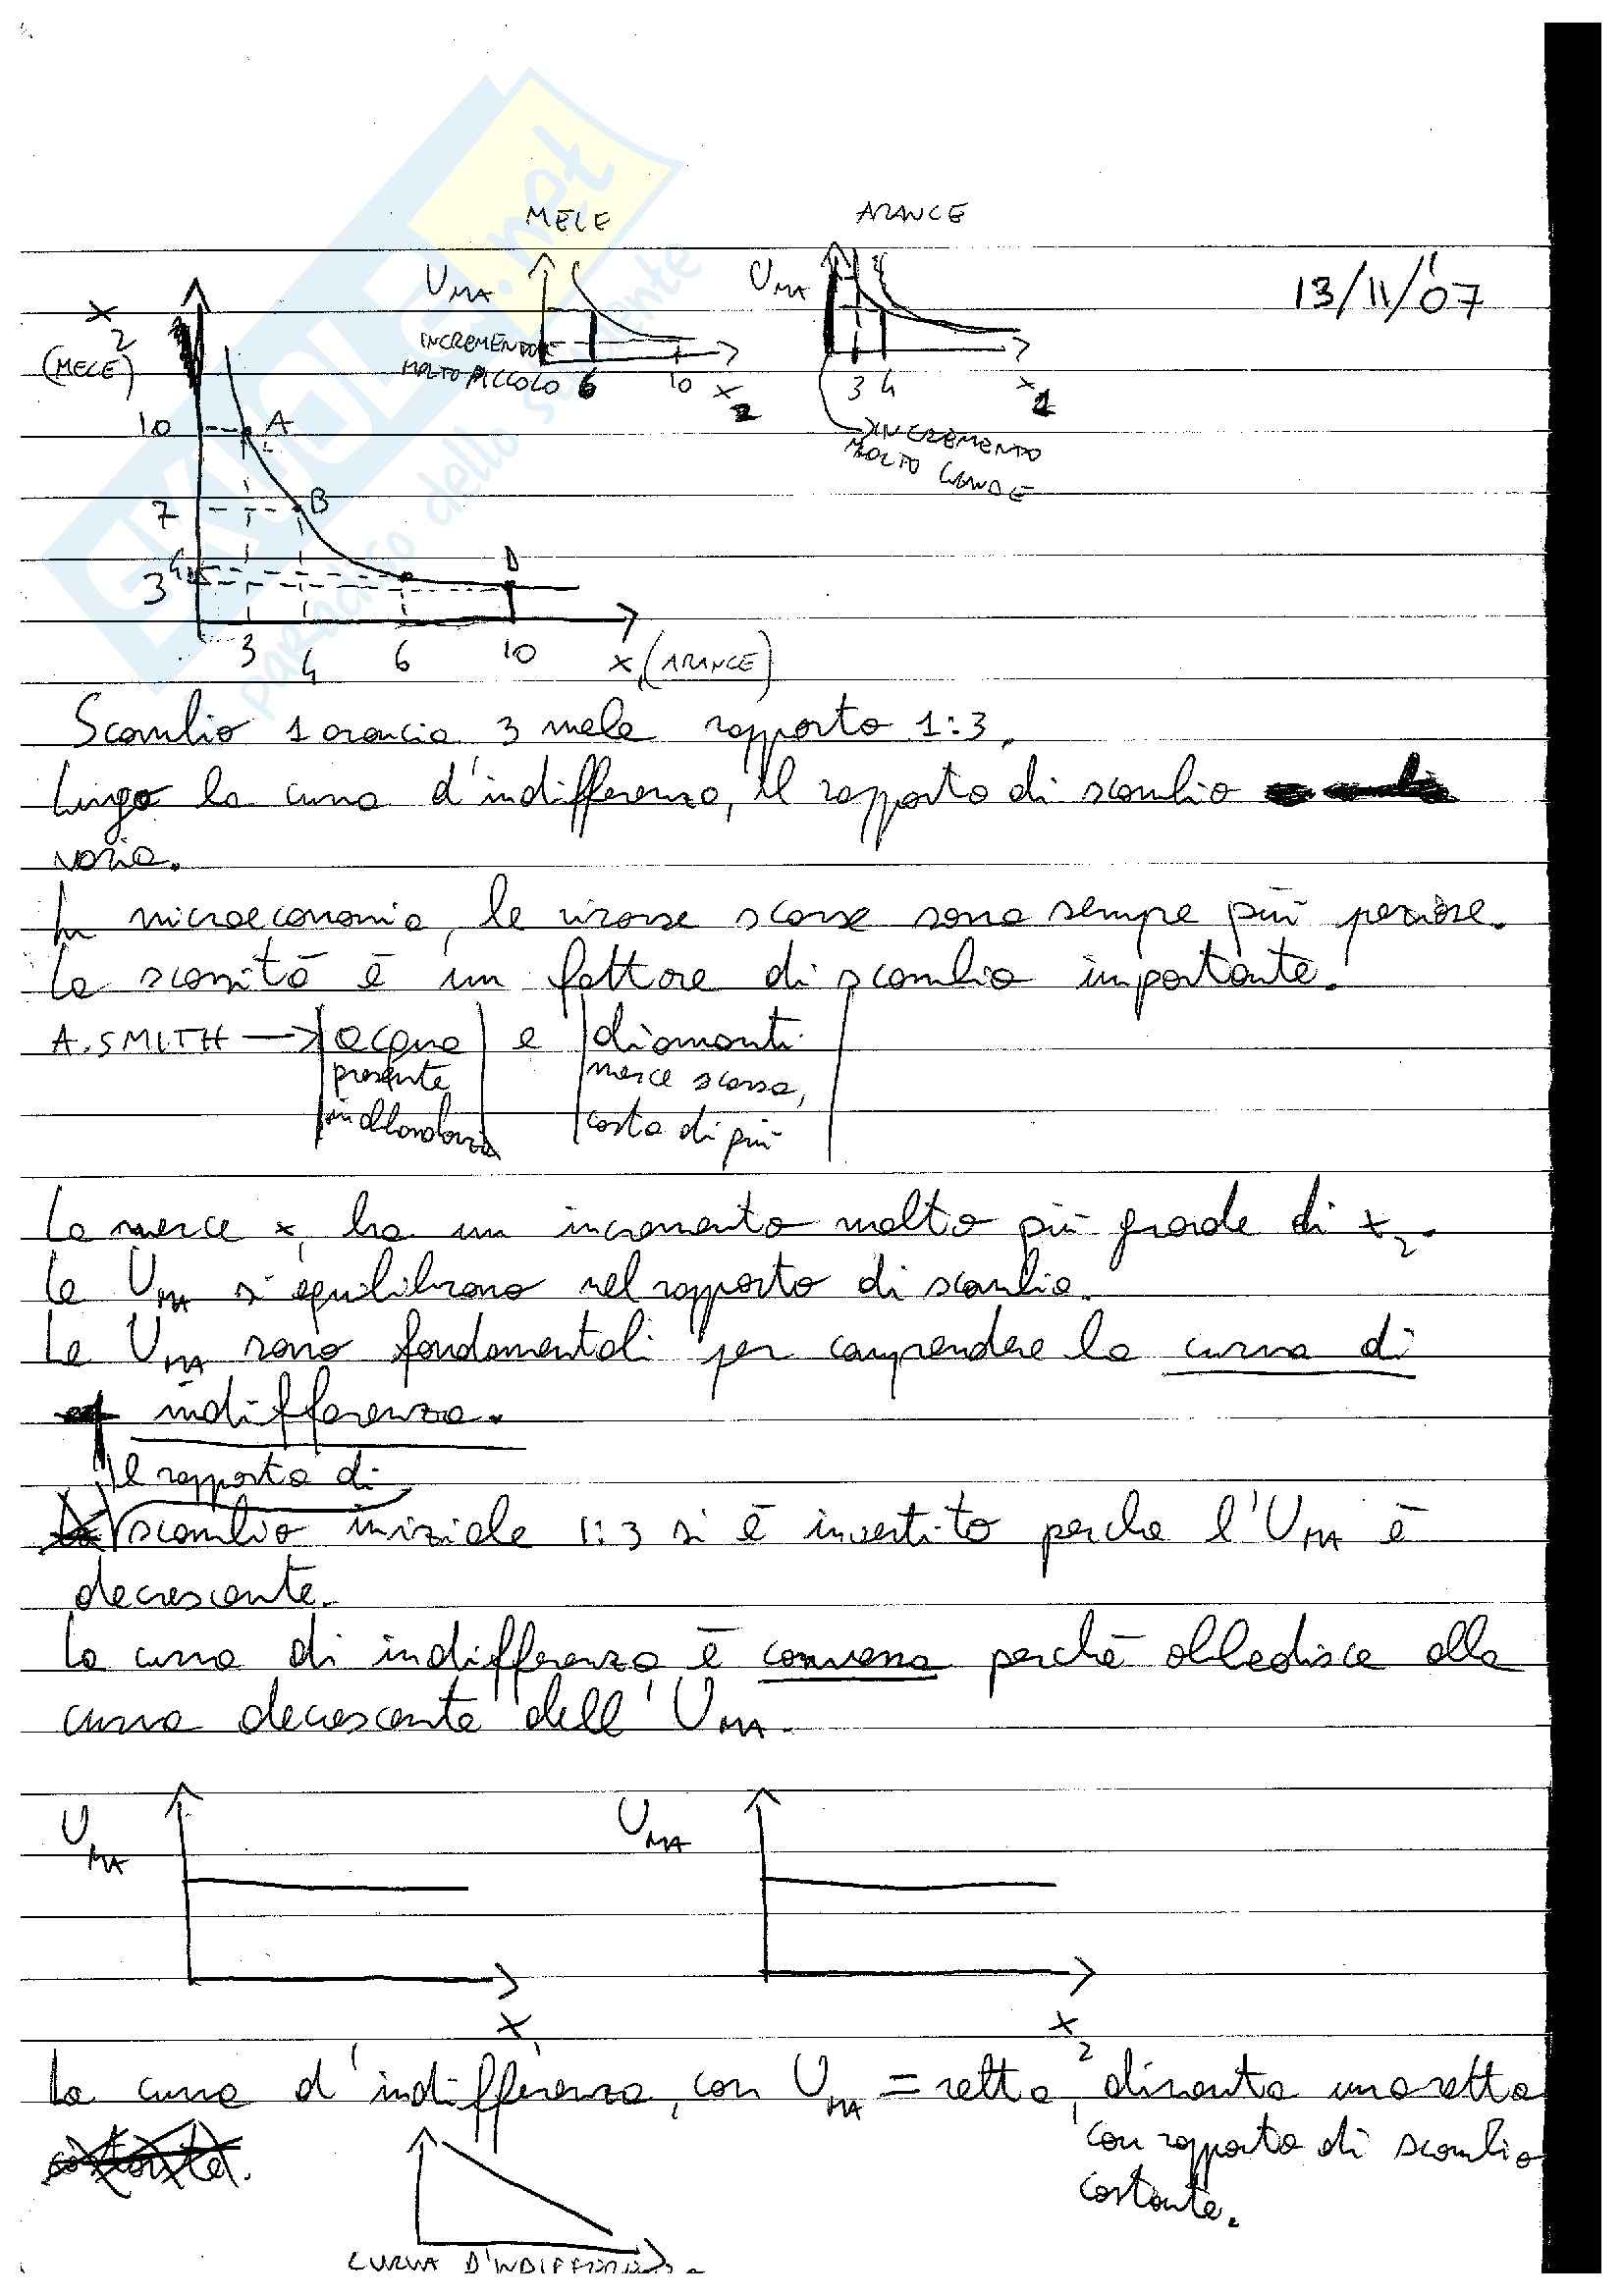 MELE
ARANCE
13/11/'07
U MA
U MA
x2
(MELE)
INCREMENTO
MOLTO PICCOLO
6
10
x2
3
4
x1
INCREMENTO
MOLTO GRANDE
10
A
7
B
4
3
D
3
4
6
10
x1 (ARANCE)
Scambio 1 arancia 3 mele rapporto 1:3.
Lungo la curva d'indifferenza, il rapporto di scambio
varia.
In microeconomia, le risorse scarse sono sempre più preziose.
La scarsità è un fattore di scambio importante.
A. SMITH → acqua e diamanti
presente
in abbondanza
merce scarsa,
costa di più
La merce x1 ha un incremento molto più grande di x2.
Le UMA si equilibrano nel rapporto di scambio.
Le UMA sono fondamentali per comprendere la curva di
indifferenza.
Il rapporto di
scambio iniziale 1:3 si è invertito perché l'UMA è
decrescente.
La curva di indifferenza è convessa perché obbedisce alla
curva decrescente dell'UMA.
U MA
U MA
x1
x2
La curva d'indifferenza, con UMA = retta, diventa una retta
con rapporto di scambio
costante.
CURVA D'INDIFFERENZA